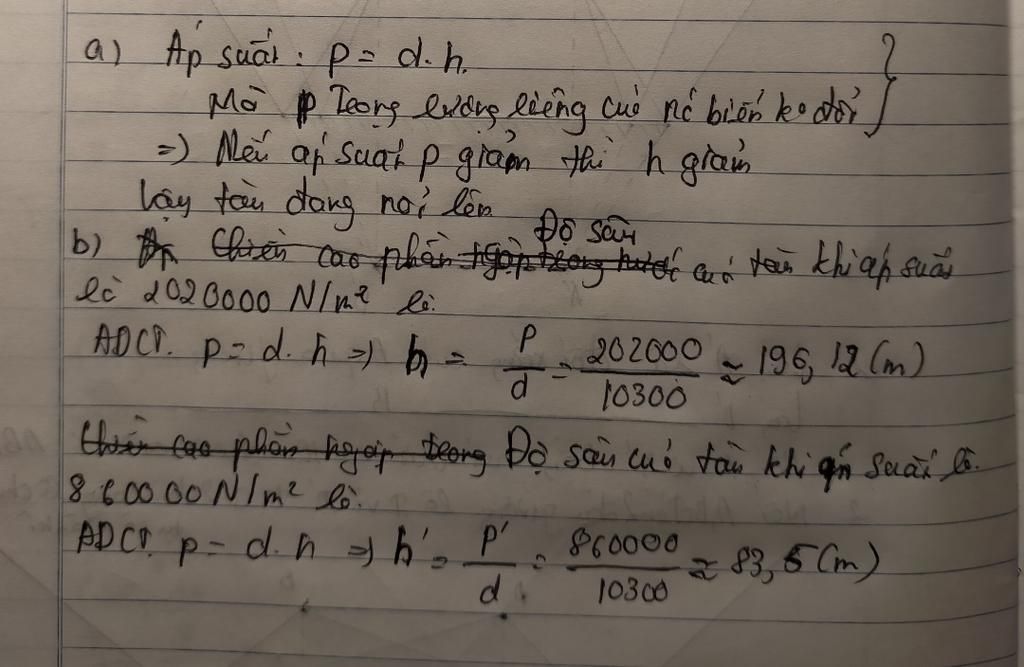 a) Áp suất : p = d.h.
Mà p Trọng lượng riêng của nc biển ko đổi }
=) Nếu áp suất p giảm thì h giảm
Vậy tàu đang nổi lên
b) Chiều cao phần ngập trong nước Độ sâu của tàu khi áp suất
là 2020000 N/m² là:
ADCT. p = d.h => h = p/d = 202000/10300 ≈ 196,12 (m)
Chiều cao phần ngập trong Độ sâu của tàu khi áp suất là.
860000 N/m² là.
ADCT. p = d.h => h' = p'/d = 860000/10300 ≈ 83,5 (m)